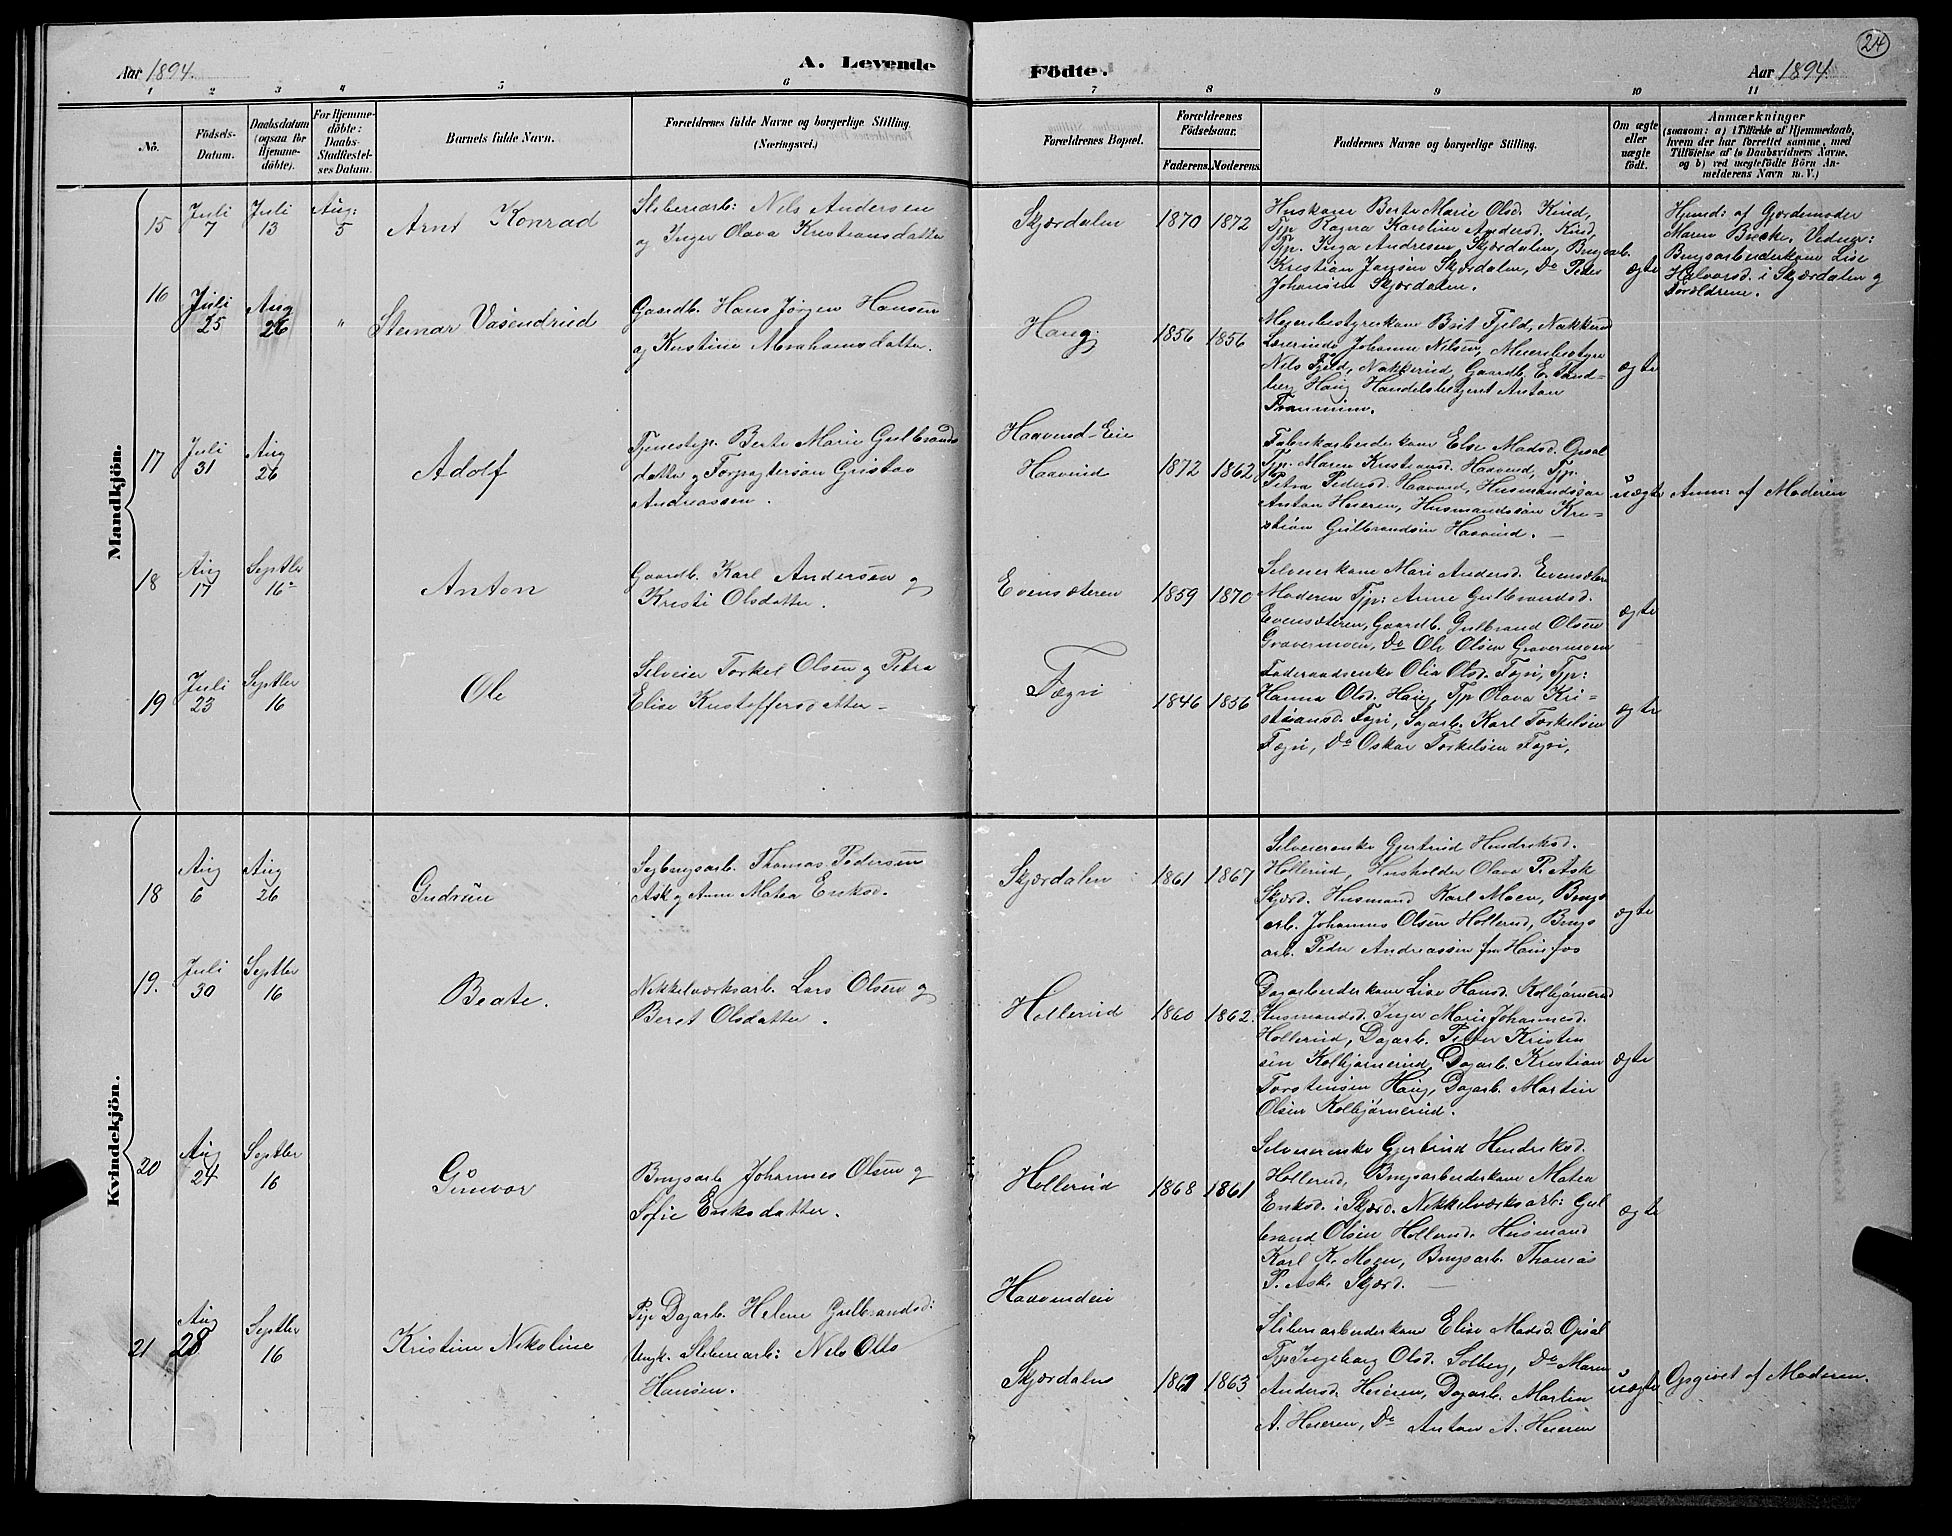 24
Aar 1894.
A. Levende
Födte.
Aar 1894
1 2 3 4 5 6 7 8 9 10 11
No.
Födsels-
Datum.
Daabsdatum
(ogsaa for
Hjemme-
döbte).
For Hjemme-
döbte:
Daabs-
Stadfæstel-
ses Datum.
Barnets fulde Navn.
Forældrenes fulde Navne og borgerlige Stilling.
(Næringsvei.)
Forældrenes Bopæl.
Forældrenes
Födselsaar.
Faderens.
Moderens.
Faddernes Navne og borgerlige Stilling.
Om ægte
eller
uægte
födt.
Anmærkninger
(saasom: a) i Tilfælde af Hjemmedaab,
hvem der har forrettet samme, med
Tilföielse af to Daabsvidners Navne,
og b) ved uægtefödte Börn An-
melderens Navn m. V.)
Mandkjön.
15
Juli
7
Juli
13
Aug:
5
Arnt Konrad
Sliberiarb: Nils Andersen
og Inger Olava Kristiansdatter
Skjærdalen
1870
1872
Huskone Berte Marie Olsd. Kind,
Tjp Ragna Karoline Andersd. Kind,
Tjp. Inga Andresen Skjærdalen, Brugsarb.
Kristian Jansen Skjærdalen, Do Peder
Johansen Skjærdalen.
ægte
Hjmd: af Gjordemoder
Maren Brekke. Vidner:
Brugsarbeiderkone Lise
Halvorsd. i Skjærdalen og
Forældrene.
16
Juli
25
Aug
26
"
Steinar Vasendrud
Gaardb. Hans Jørgen Hansen
og Kristine Abrahamsdatter.
Haug
1856
1856
Meieribestyrerkone Brit Fjeld, Nakkerud
Lærerinde Johanne Nilsen, Meieribestyre
Nils Fjeld, Nakkerud, Gaardb. E. Thand-
berg Haug Handelsbetjent Anton
17
Juli
31
Aug
26
Adolf
Tjenestep. Berte Marie Gulbrands
datter og Forpagtersøn Gustav
Andreassen.
Haavrud-Eie
Haavrud
1872
1862
Fabrikarbeiderkone Else Madsd. Opsal
Tjp. Maren Kristiansd. Haavrud, Tjp.
Petra Pedersd. Haavrud, Husmandssøn
Anton Heieren, Husmandssøn Kri-
stian Gulbrandsen Haavrud. —
uægte
Anm: af Moderen
18
Aug
17
Septbr
16
Anton
Gaardb. Karl Andersen og
Kristi Olsdatter.
Evensæteren
1859
1870
Selveierkone Mari Andersd. Evensæteren
Moderen Tjp: Anne Gulbrandsd.
Evensæteren, Gaardb. Gulbrand Olsen
Gravermoen, Do Ole Olsen Gravermoen
ægte
19
Juli
23
Septbr
16
Ole
Selveier Torkel Olsen og Petra
Elise Kristoffersdatter –
Fægri
1846
1856
Føderaadsenke Olia Olsd. Fægri, Tjp:
Hanna Olsd. Haug, Tjp Olava Kri-
stiansd. Fægri, Sagarb. Karl Torkelsen
Fægri, Do Oskar Torkelsen Fægri,
ægte
Kvindekjön.
18
Aug
6
Aug
26
Gudrun
Sagbrugsarb. Thomas Pedersen
Ask og Anne Matea Eriksd.
Skjærdalen
1861
1867
Selveierenke Gjertrud Hendriksd.
Hollerud, Husholder Olava P. Ask
Skjærd. Husmand Karl Moen, Brugs
arb. Johannes Olsen Hollerud, Brugs
arb. Peder Andreassen fra Hønefos
ægte
19.
Juli
30
Septbr
16
Beate.
Nikkelværksarb. Lars Olsen og
Beret Olsdatter.
Hollerud
1860
1862.
Dagarbeiderkone Lise Hansd. Kolbjørnerud
Husmandsd. Inger Marie Johannesd.
Hollerud, Dagarb. Peter Kristen
sen Kolbjørnerud, Dagarb. Kristian
Torstensen Haug, Dagarb. Martin
Olsen Kolbjørnerud.
ægte
20
Aug
24
Septbr
16
Gunvor
Brugsarb Johannes Olsen og
Sofie Eriksdatter.
Hollerud
1868
1861
Selveierenke Gjertrud Hendriksd.
Hollerud, Brugsarbeiderkone Matea
Eriksd. i Skjærd. Nikkelværksarb: Gul
brand Olsen Hollerud, Husmand
Karl K. Moen, Brugsarb. Thomas
P. Ask. Skjærd. —
ægte
21
Aug
28
Septbr
16
Kristine Nikoline
Pige Dagarb. Helene Gulbrandsd:
Ungk. Sliberiarb: Nils Otto
Hansen.
Haavrudeie
Skjærdalen
1861
1863
Sliberiarbeiderkone Elise Madsd. Opsal
Tjp Ingeborg Olsd. Solberg, Do Maren
Andersd. Heieren, Dagarb. Martin
A. Heieren, Do Anton A. Heieren
uægte
Opgivet af Moderen.